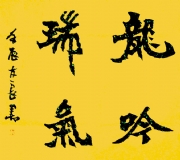 龍吟
瑞氣